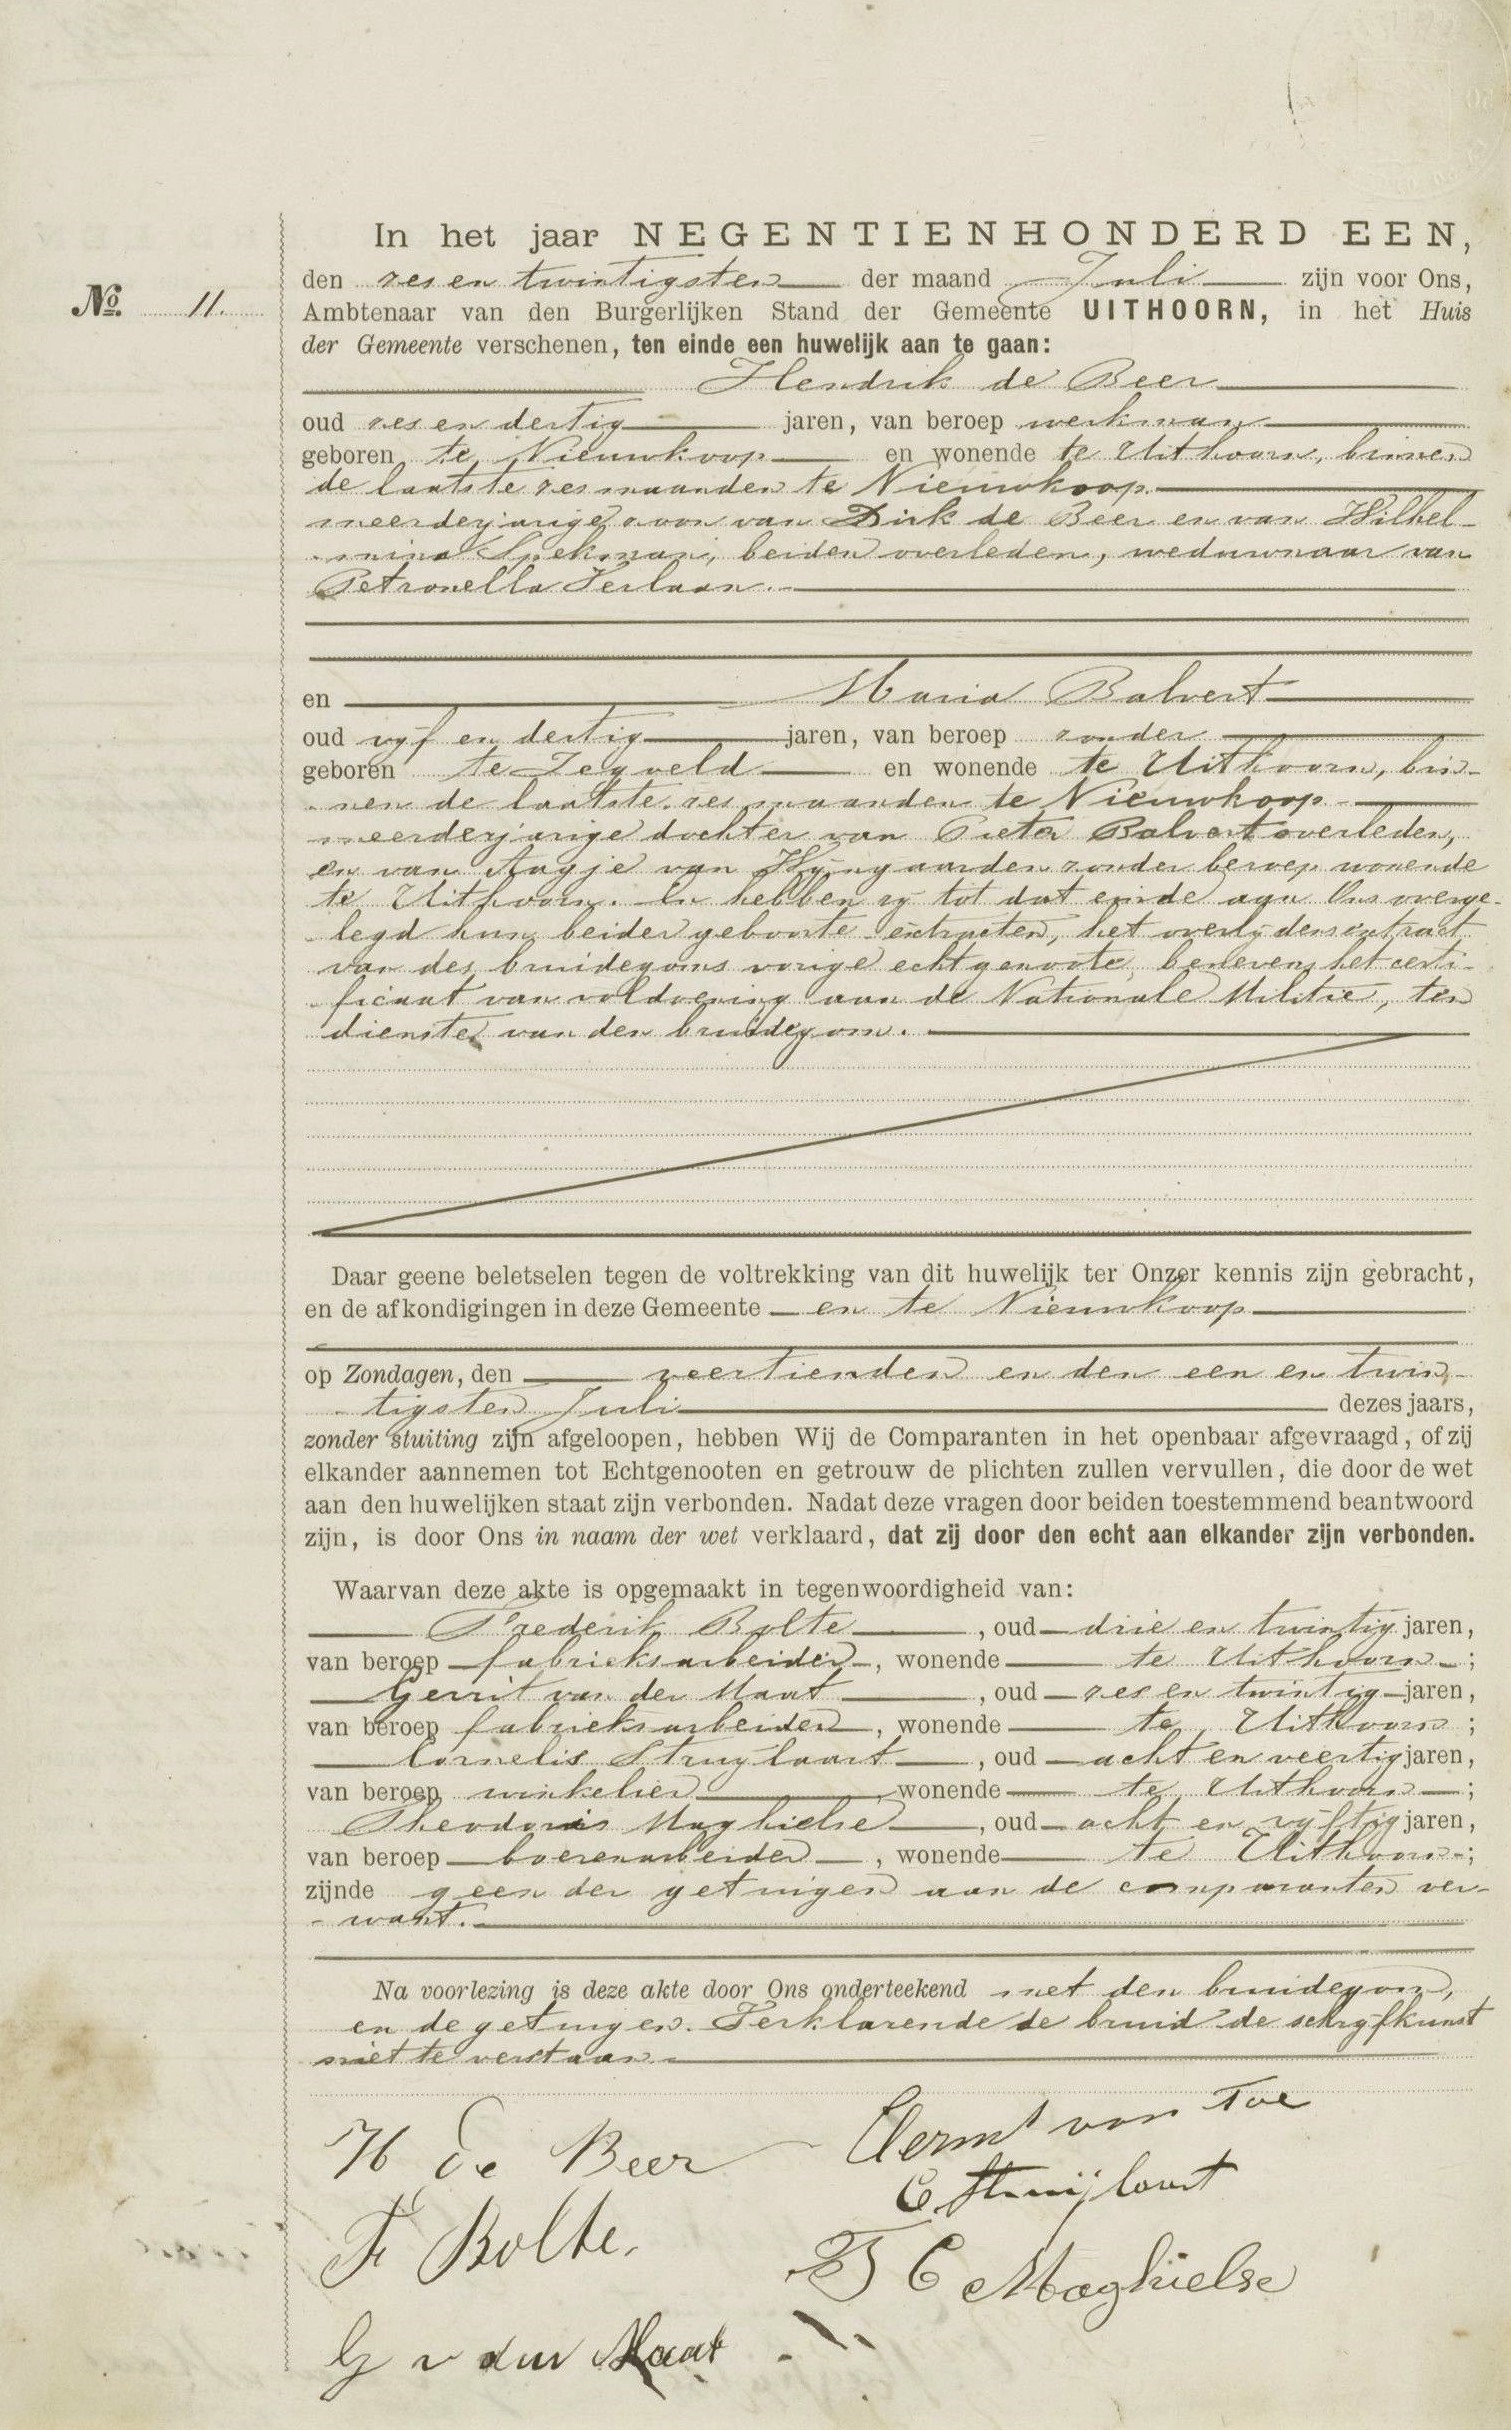 In het jaar NEGENTIENHONDERD EEN,
den zes en twintigsten der maand Juli zijn voor Ons,
No. 11.
Ambtenaar van den Burgerlijken Stand der Gemeente UITHOORN, in het Huis
der Gemeente verschenen, ten einde een huwelijk aan te gaan:
Hendrik de Beer
oud zes en dertig jaren, van beroep werkman
geboren te Nieuwkoop en wonende te Uithoorn, binnen
de laatste zes maanden te Nieuwkoop
meerderjarige zoon van Dirk de Beer en van Wilhel-
mina Spekman, beiden overleden, weduwnaar van
Petronella Verlaan.
en Maria Balvert
oud vyf en dertig jaren, van beroep zonder
geboren te Zegveld en wonende te Uithoorn, bin-
nen de laatste zes maanden te Nieuwkoop
meerderjarige dochter van Pieter Balvert overleden,
en van Aagje van Wyngaarden zonder beroep wonende
te Uithoorn. En hebben zy tot dat einde aan Ons overge-
legd hun beider geboorte extracten, het overlydensextract
van des bruidegoms vorige echtgenoote, benevens het certi-
ficaat van voldoening aan de Nationale Militie, ten
dienste van den bruidegom.
Daar geene beletselen tegen de voltrekking van dit huwelijk ter Onzer kennis zijn gebracht,
en de afkondigingen in deze Gemeente en te Nieuwkoop
op Zondagen, den veertienden en den een en twin-
tigsten Juli dezes jaars,
zonder stuiting zijn afgeloopen, hebben Wij de Comparanten in het openbaar afgevraagd, of zij
elkander aannemen tot Echtgenooten en getrouw de plichten zullen vervullen, die door de wet
aan den huwelijken staat zijn verbonden. Nadat deze vragen door beiden toestemmend beantwoord
zijn, is door Ons in naam der wet verklaard, dat zij door den echt aan elkander zijn verbonden.
Waarvan deze akte is opgemaakt in tegenwoordigheid van:
Frederik Bolte, oud drie en twintig jaren,
van beroep fabrieksarbeider, wonende te Uithoorn;
Gerrit van der Maat, oud zes en twintig jaren,
van beroep fabrieksarbeider, wonende te Uithoorn;
Cornelis Struylaart, oud acht en veertig jaren,
van beroep winkelier, wonende te Uithoorn;
Theodorus Maghielse, oud acht en vyftig jaren,
van beroep boerenarbeider, wonende te Uithoorn;
zijnde geen der getuigen aan de comparanten ver-
want.
Na voorlezing is deze akte door Ons onderteekend met den bruidegom,
en de getuigen. Verklarende de bruid de schryfkunst
niet te verstaan.
H de Beer
van Toe
C Struijlaart
F Bolte.
T C Maghielse
G v der Maat